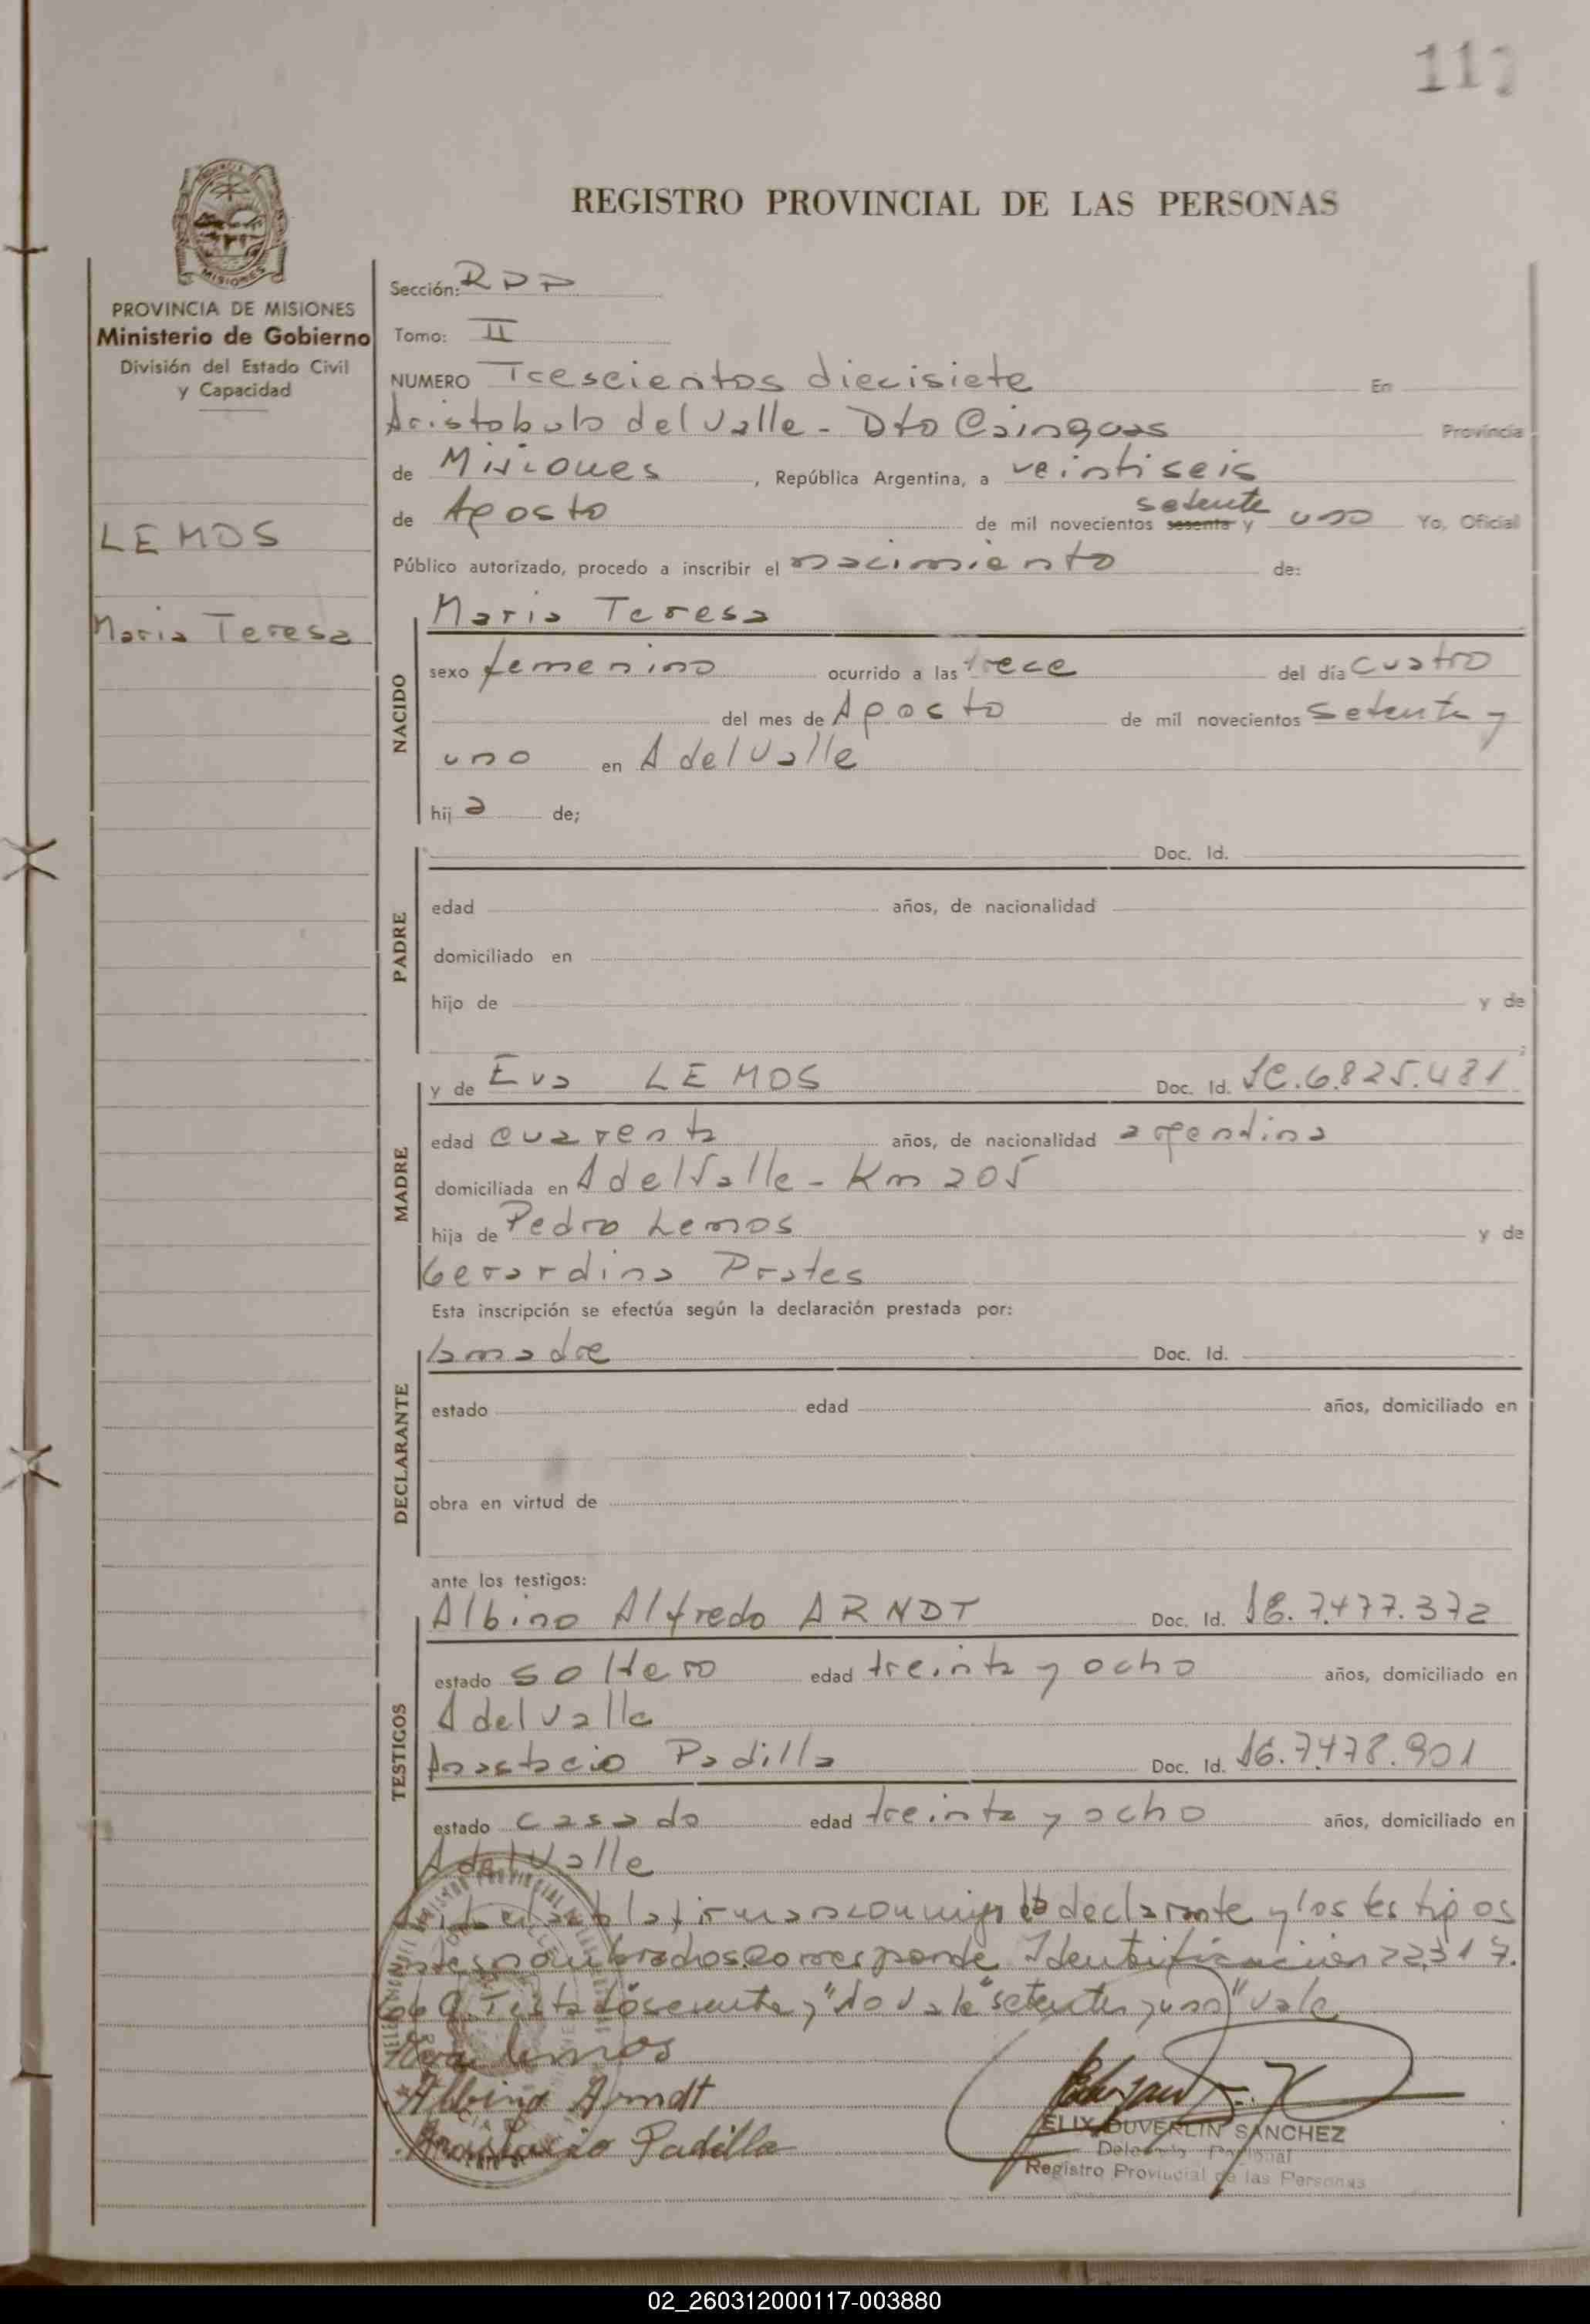 117
REGISTRO PROVINCIAL DE LAS PERSONAS
MISIONES
PROVINCIA DE MISIONES
Ministerio de Gobierno
División del Estado Civil
y Capacidad
LEMOS
Maria Teresa
Sección: RPP
Tomo: II
NUMERO Trescientos diecisiete En
Aristobulo del Valle - Dto Cainguas Provincia
de Misiones, República Argentina, a veintiseis
de Agosto de mil novecientos sesenta setenta y uno Yo, Oficial
Público autorizado, procedo a inscribir el nacimiento de:
NACIDO
Maria Teresa
sexo femenino ocurrido a las trece del día cuatro
del mes de Agosto de mil novecientos setenta y
uno en A del Valle
hija de;
PADRE
Doc. Id.
edad años, de nacionalidad
domiciliado en
hijo de y de
;
MADRE
y de Eva LEMOS Doc. Id. 6.825.481
edad cuarenta años, de nacionalidad argentina
domiciliada en A del Valle - Km 205
hija de Pedro Lemos y de
Gerardina Prates
Esta inscripción se efectúa según la declaración prestada por:
DECLARANTE
la madre Doc. Id.
estado edad años, domiciliado en
obra en virtud de
ante los testigos:
TESTIGOS
Albino Alfredo ARNDT Doc. Id. 7.477.372
estado soltero edad treinta y ocho años, domiciliado en
A del Valle
Anastacio Padilla Doc. Id. 7.478.901
estado casado edad treinta y ocho años, domiciliado en
A del Valle
la firman conmigo declarante y los testigos
corresponde Identificacion 22317.
Testado "sesenta y" No vale "setenta y uno" vale
Eva Lemos
Albino Arndt
Anastacio Padilla
ELIX DUVERLIN SANCHEZ
Registro Provincial de las Personas
02_260312000117-003880